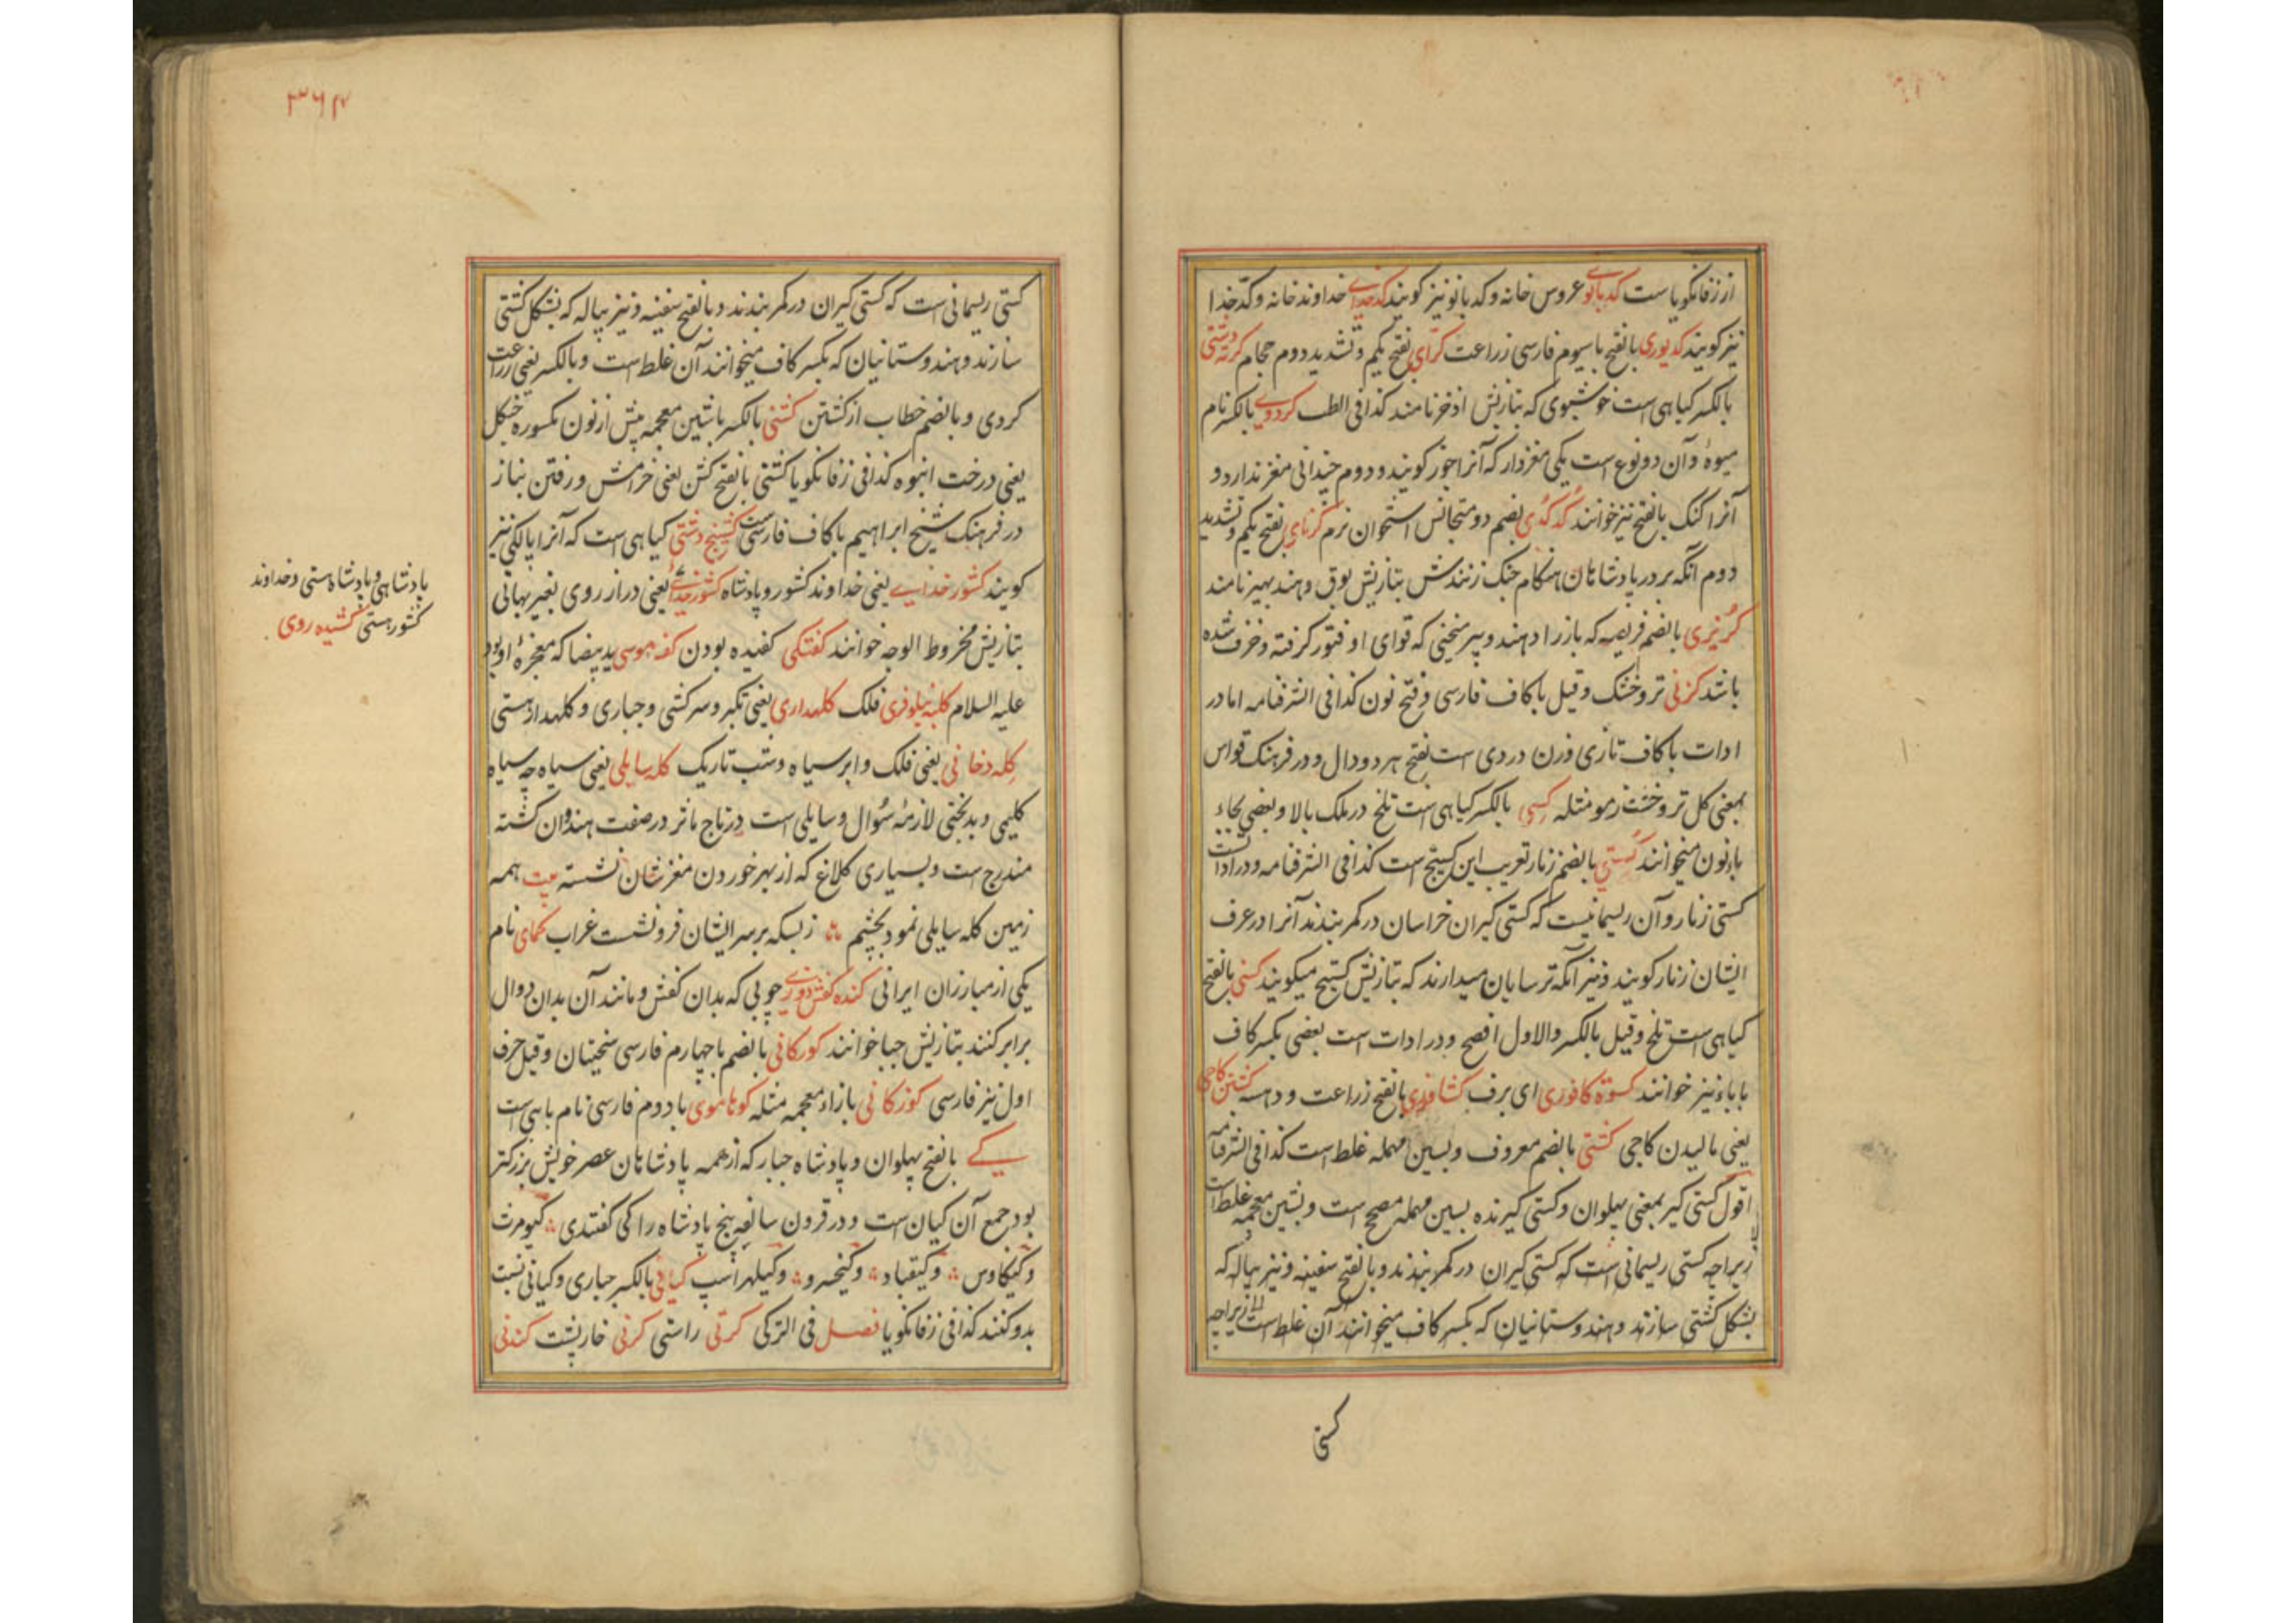 از زفانگویاست کدبانوی عروس خانه و کدبانو نیز گویند کدخدای خداوند خانه و کدخدا
نیز گویند کدیوری بالفتح با سیوم فارسی زراعت کرای بفتح یکم و تشدید دوم حجام کرته دشتی
بالکسر گیاهی است خوشبوی که بتازیش اذخر نامند کذا فی الطب کردوی بالکسر نام
میوهٔ و آن دو نوع است یکی مغزدار که آنرا جوز گویند و دوم چندانی مغز ندارد و
آنرا کنک بالفتح نیز خوانند کدکدی بضم دو متجانس استخوان نرم کرنای بفتح یکم و تشدید
دوم آنکه بر در پادشاهان هنگام جنک زنندش بتازیش بوق و هند بهیر نامند
کریزی بالضم فریصه که باز را دهند و پیر منحنی که قوای او فتور گرفته و خرف شده
باشد کزنی تر و خشک و قیل با کاف فارسی و فتح نون کذا فی الشرفنامه اما در
ادات با کاف تازی وزن دردی است بفتح هر دو دال و در فرهنک قواس
بمعنی کل تر و خشت زمو مثله کسی بالکسر گیاهی است تلخ در ملک بالا و بعضی بجاء
با نون میخوانند کستی بالضم زنار تعریب این کستیج است کذا فی الشرفنامه و در ادات است
کستی زنار و آن ریسمانیست که کستی گیران خراسان در کمر بندند آنرا در عرف
ایشان زنار گویند و نیز آنکه ترسایان میدارند که بتازیش کستیج میگویند کسنی بالفتح
گیاهی است تلخ و قیل بالکسر والاول افصح و در ادات است بعضی بکسر کاف
با باء نیز خوانند کسوة کافوری ای برف کشاورزی بالفتح زراعت و دهسه کشتن کاجی
یعنی مالیدن کاجی کشتی بالضم معروف و بسین مهمله غلط است کذا فی الشرفنامه
اقول کستی گیر بمعنی پهلوان و کستی گیرنده بسین مهمله مصحح است و بشین معجمه غلط است
زیراچه کستی ریسمانی است که کستی گیران در کمر بندند و بالفتح سفینه و نیز پیاله که
بشکل کشتی سازند و هندوستانیان که بکسر کاف میخوانند آن غلط است زیراچه
کستی
۳۶۴
کستی ریسمانی است که کستی گیران در کمر بندند و بالفتح سفینه و نیز پیاله که بشکل کشتی
سازند و هندوستانیان که بکسر کاف میخوانند آن غلط است و بالکسر یعنی زراعت
کردی و بالضم خطاب از کشتن کشنی بالکسر با شین معجمه پیش از نون مکسوره جنکل
یعنی درخت انبوه کذا فی زفانگویا کشتی بالفتح کشن یعنی خرامش و رفتن بناز
در فرهنک شیخ ابراهیم با کاف فارسی است کشنیج دشتی گیاهی است که آنرا پالکی نیز
گویند کشور خدایی یعنی خداوند کشور و پادشاه کشور خدای یعنی دراز روی بغیر پهانی
بتازیش مخروط الوجه خوانند کفتکی کفیده بودن کفه موسی ید بیضا که معجزهٔ او بود
علیه السلام کلبه نیلوفری فلک کلهداری یعنی تکبر و سرکشی و جباری و کلهدار هستی
کله دخانی یعنی فلک و ابر سیاه و شب تاریک کله سایلی یعنی سیاه چه سیاه
کلیمی و بدبختی لازمهٔ سؤال و سایلی است در تاج ماثر در صفت هندوان کشته
مندرج است و بسیاری کلاغ که از بهر خوردن مغزشان نشسته بیت همه
زمین کله سایلی نمود بچشم ؞ زبسکه بر سر ایشان فرو نشست غراب کمای نام
یکی از مبارزان ایرانی کنده کفش دوزی چوبی که بدان کفش و مانند آن بدان دوال
برابر کنند بتازیش جبا خوانند کورکانی بالضم با چهارم فارسی سختیان و قیل حرف
اول نیز فارسی کوزکانی با زاء معجمه مثله کوپاموی با دوم فارسی نام باهی است
کی بالفتح پهلوان و پادشاه جبار که از همه پادشاهان عصر خویش بزرکتر
بود جمع آن کیان است و در قرون سالفه پنج پادشاه را کی گفتندی ؞ کیومرث
و کیکاوس ؞ و کیقباد ؞ و کیخسرو ؞ و کیلهراسپ کیانی بالکسر جباری و کیانی نسبت
بدو کنند کذا فی زفانگویا فصل فی الترکی کرتی راستی کرنی خارپشت کندنی
پادشاهی و پادشاه هستی و خداوند
کشور هستی کشیده روی